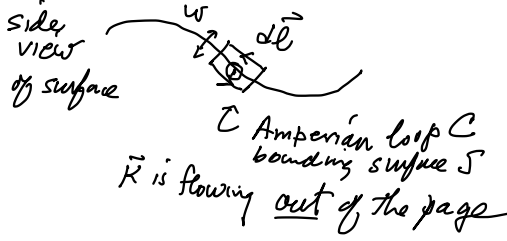 side
view
of surface
w
dl⃗
C Amperian loop C
bounding surface S
K⃗ is flowing out of the page